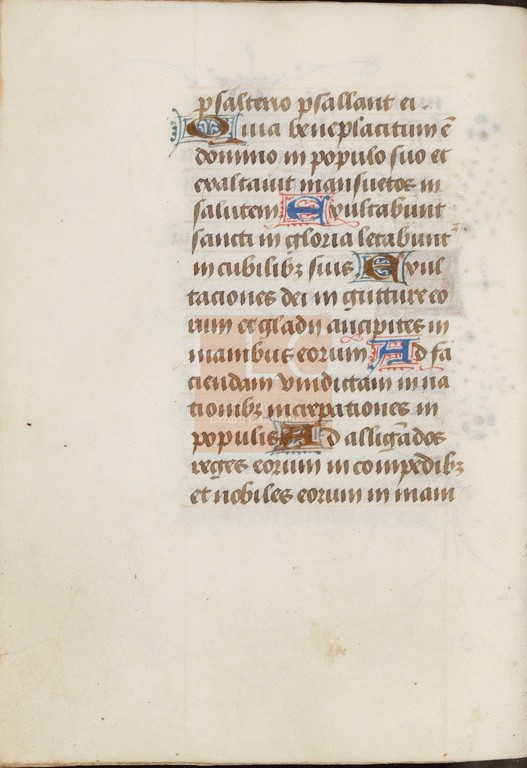 psalterio psallant ei.
Quia beneplacitum ē
domino in populo suo et
exaltauit mansuetos in
salutem Exultabunt
sancti in gloria letabunt᷑
in cubilibꝫ suis Exul
taciones dei in gutture eo
rum et gladii ancipites in
manibus eorum Ad fa
ciendam vindictam in na
tionibꝫ increpationes in
populis Ad alligādos
reges eorum in compedibꝫ
et nobiles eorum in mani